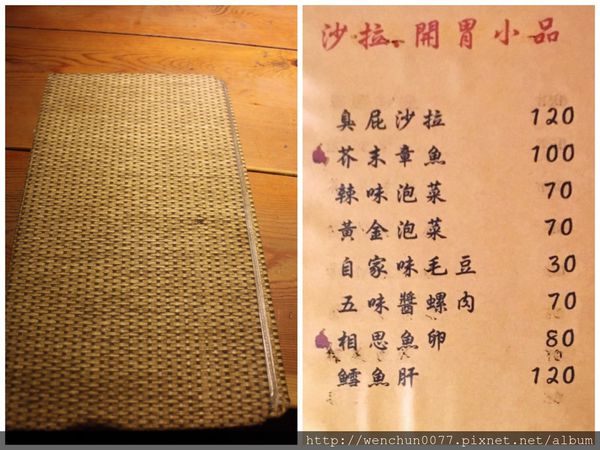 沙拉、開胃小品
臭屁沙拉 120
芥末章魚 100
辣味泡菜 70
黃金泡菜 70
自家味毛豆 30
五味醬螺肉 70
相思魚卵 80
鱈魚肝 120
http://wenchun0077.pixnet.net/album